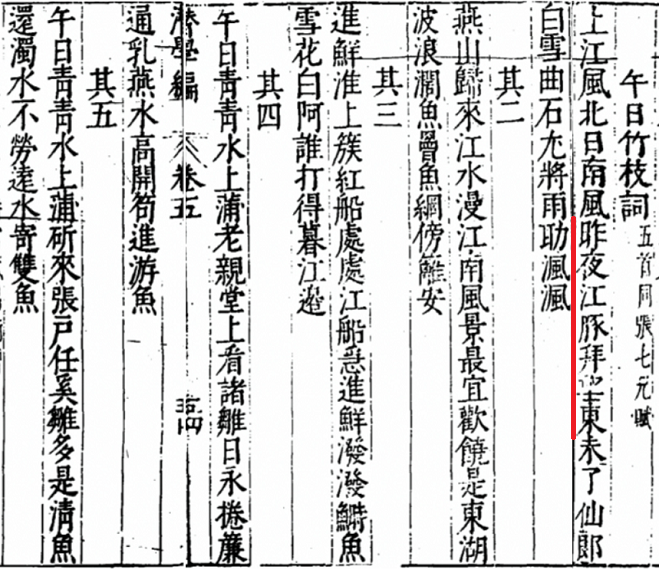 午日竹枝詞 五首同張七元賦
上江風北日南風昨夜江豚拜東未了仙郎
白雪曲石尤將雨助渢渢
其二
燕山歸來江水漫江南風景最宜歡饒是東湖
波浪濶魚罾魚網傍籬安
其三
進鮮淮上簇紅船處處江船急進鮮潑潑鰣魚
雪花白阿誰打得暮江邊
其四
午日青青水上蒲老親堂上看諸雛日永捲簾
墨編 卷五
通乳燕水高開笱進游魚
其五
午日青青水上蒲斫來張戶任奚雛多是清魚
還濁水不勞遠水寄雙魚